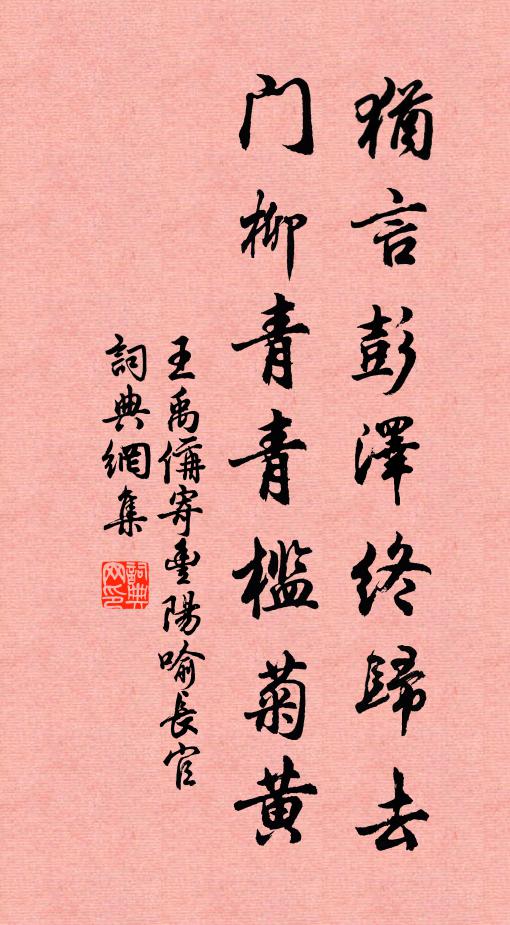 猶言彭澤終歸去
门柳青青檻菊黄
王禹偁寄豐陽喻長官
詞典網集
詞典网印